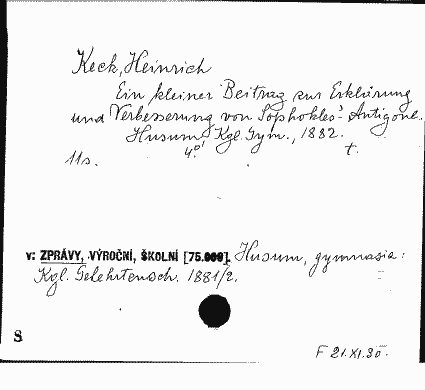 Keck, Heinrich
Ein kleiner Beitrag zur Erklärung
und Verbesserung von Sophokles' Antigone.
Husum, Kgl. Gym., 1882.
4°. t.
11s.
v: ZPRÁVY, VÝROČNÍ, ŠKOLNÍ [75.000]. Husum, gymnasia:
Kgl. Gelehrtensch. 1881/2.
S
F 21.XI.30.